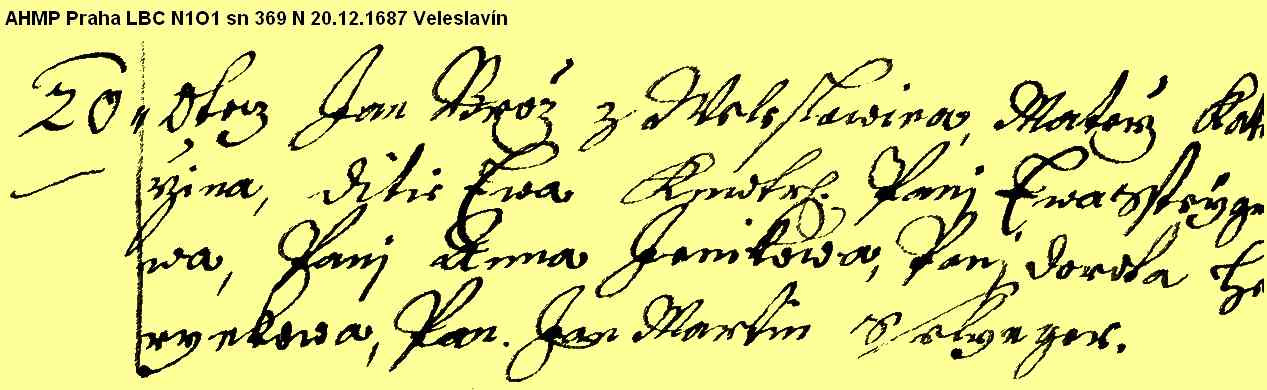 AHMP Praha LBC N1O1 sn 369 N 20.12.1687 Veleslavín
20. Otecz Jan Broz z Weleslawina, Materz Kat
rzina, ditie Ewa Kmotrz. Panj Ewa
wa, Panj Anna Jenikowa, Panj Dorota
Pan. Jan Martin